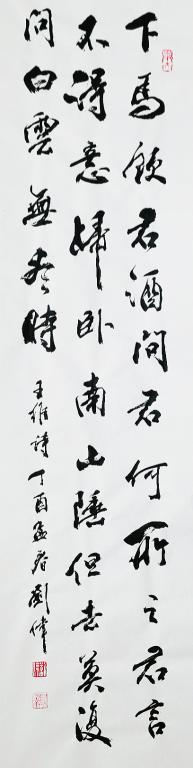 下馬飲君酒問君何所之君言
不得意歸臥南山陲但去莫復
問白雲無盡時
王維詩丁酉孟春劉偉